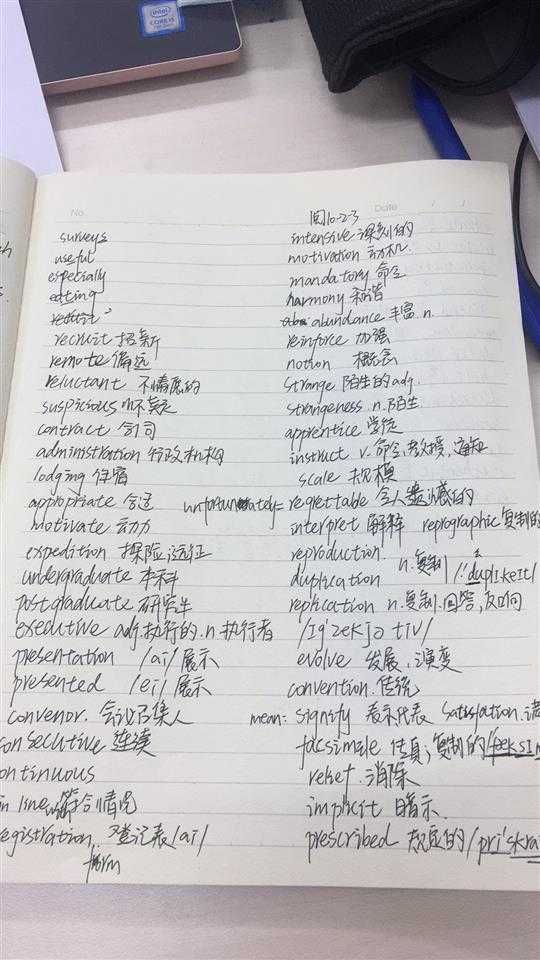 intel
CORE i5
No.
surveys
useful
especially
editing
recruit 招新
remote 偏远
reluctant 不情愿的
suspicious
contract 合同
administration 行政机构
lodging 住宿
appropriate 合适
motivate 动力
expedition 探险远征
undergraduate 本科
postgraduate 研究生
executive adj.执行的.n 执行者
presentation /ai/ 展示
presented /ei/ 展示
convenor. 会议召集人
consecutive 连续
ontinuous
in line with 符合情况
egistration 登记表/ai/
form
Date / /
10-2-3
intensive 深刻的
motivation 动机.
mandatory 命令
harmony 和谐
abundance 丰富.n.
reinforce 加强
notion 概念
strange 陌生的adj.
strangeness n.陌生
apprentice 学徒
instruct v.命令,教授,通知
scale 规模
unfortunately= regrettable 令人遗憾的
interpret 解释 reprographic 复制的
reproduction.
duplication n.复制
replication n.复制.回答,反响
evolve 发展.演变
convention.传统
mean: signify 表示代表
facsimile 传真;复制的
消除
implicit 暗示.
prescribed 规定的